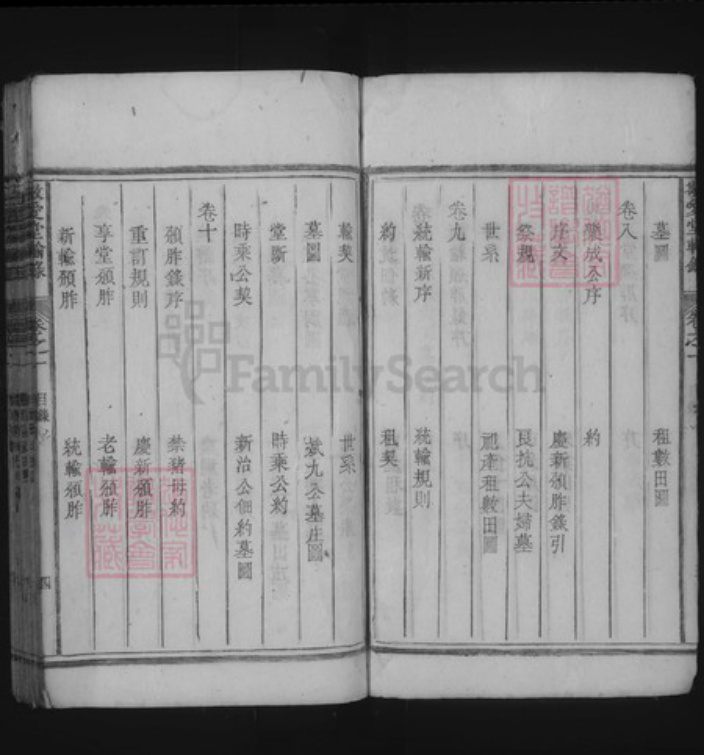 墓圖 租數田圖
卷八
樂成公序 約
序文 慶新頒胙錄引
祭規 良抗公夫婦墓
世系 祀產租數田圖
卷九
統輪新序 統輪規則
約 租契
輪契 世系
墓圖 武九公墓庄圖
堂斷 時乘公約
時乘公契 新治公佃約墓圖
卷十
頒胙錄序 禁豬母約
重訂規則 慶新頒胙
享堂頒胙 老輪頒胙
新輪頒胙 統輪頒胙
目錄
四
FamilySearch